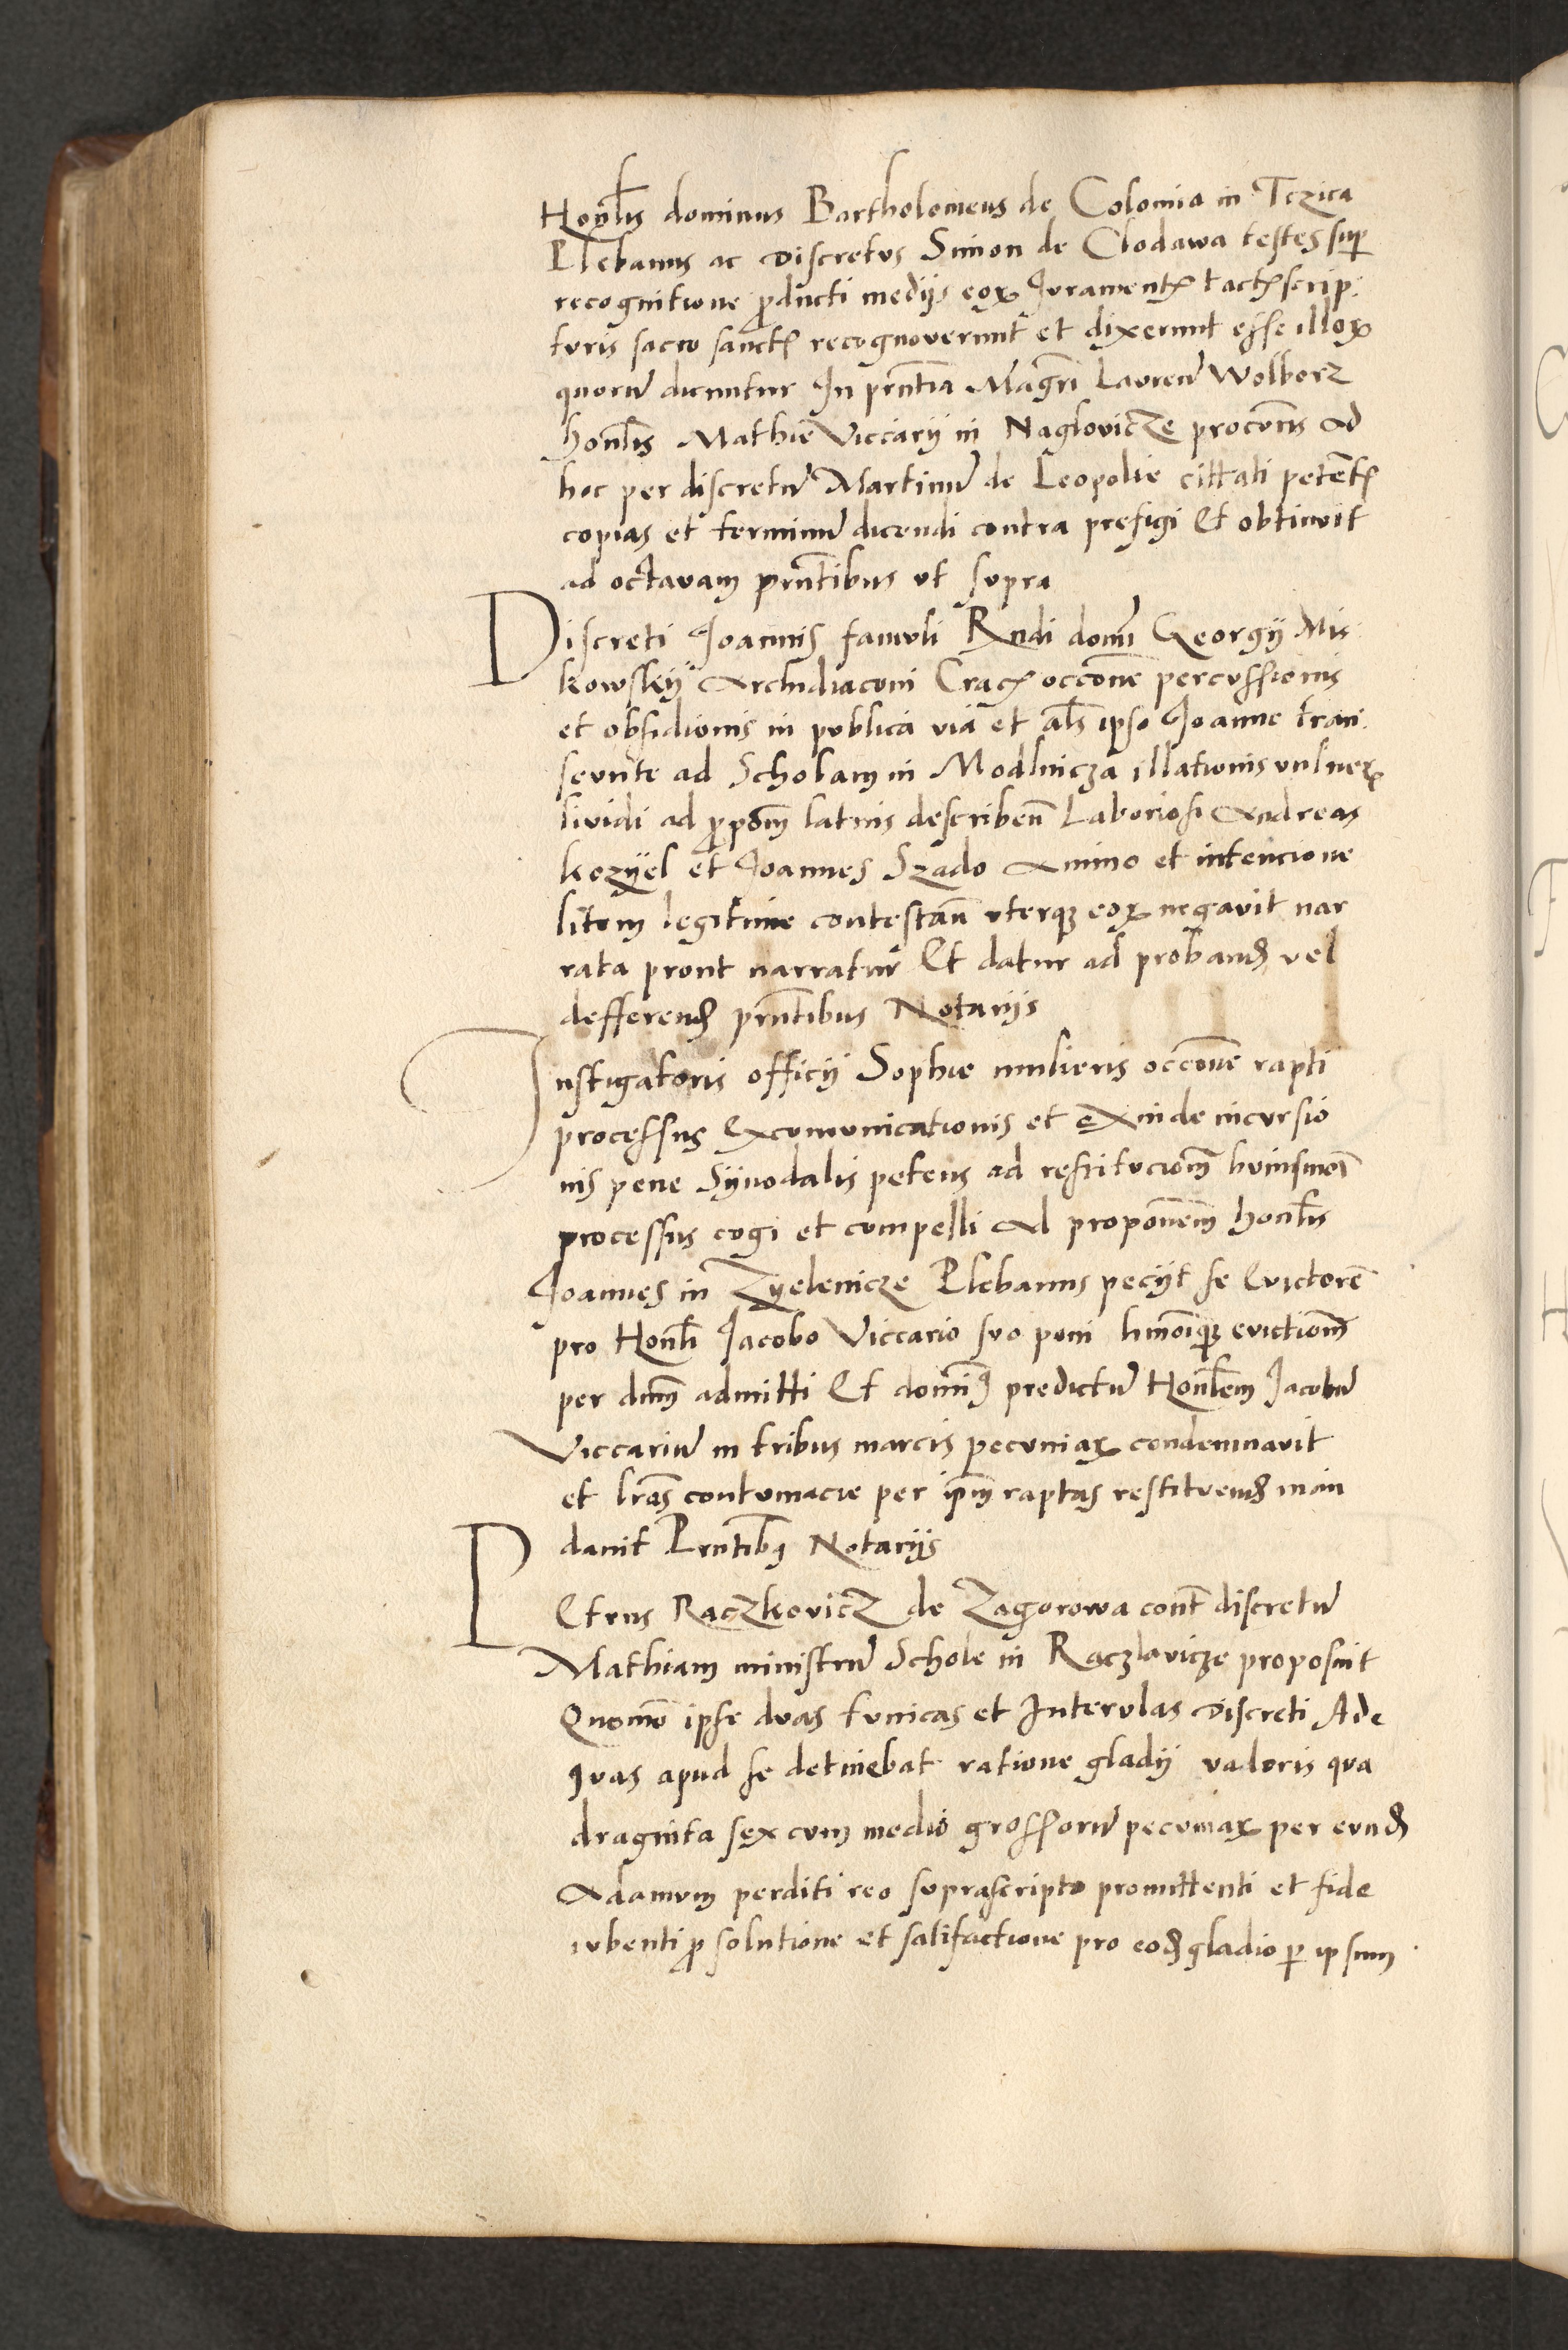 Honlis dominus Bartholomeus de Colomia in Tczica
Plebanus ac discretus Simon de Clodawa testes sup
recognitione producti medijs eoꝝ Iuramentꝭ tactꝭ scrip
turis sacro sanctꝭ recognoverunt et dixerunt esse illoꝝ
quorū dicuntur In pn̄tia Magr̄i Laurenꝭ Wolborz
honlis Mathie Viccarij in Naglovicze procuris ad
hoc per discretū Martinū de Leopolie cittati petentꝭ
copias et terminū dicendi contra prefigi Et obtinuit
ad octavam prn̄tibus ut supra
Discreti Joannis famuli Rndi domi Georgij Mis
kowskij Archidiaconi Cracꝭ occōne percussionis
et obsidionis in publica via et als ipso Joanne tran
seunte ad Scholam in Modlnicza illationis vulneꝝ
lividi ad ꝓpom latius describen̄ Laboriosi Andreas
kozyel et Joannes Szado Animo et intencione
litem legitime contestan̄ uterqꝫ eoꝝ negavit nar
rata prout narratur Et datur ad probandꝭ vel
defferendꝭ prn̄tibus Notarijs
Instigatoris officij Sophie mulieris occōne rapti
processus Excomunicationis et exinde incursio
nis pene Synodalis petens ad restitucionem huiusmōi
processus cogi et compelli Ad proponem honlis
Joannes in Zyelenicze Plebanus pecijt se Evictorē
pro Honli Jacobo Viccario suo poni hmōiqꝫ evictionem
per dnm admitti Et dominꝭ predictū Honlem Jacobū
Viccariū in tribus marcis pecuniaꝝ condemnavit
et lrās contumacie per ipm raptas restituendꝭ man
davit Prn̄tibꝫ Notarijs
PEtrus Raczkovicz de Zagorowa cont discretū
Mathiam ministrū Schole in Raczlavicze proposuit
Quomō ipse duas tunicas et Interulas discreti Ade
quas apud se detinebat ratione gladij valoris qua
draginta sex cum medio grossorū pecuniaꝝ per eundꝭ
Adamum perditi reo suprascripto promittenti et fide
iubenti ꝓ solutione et satifactione pro eodꝭ gladio ꝑ ipsum